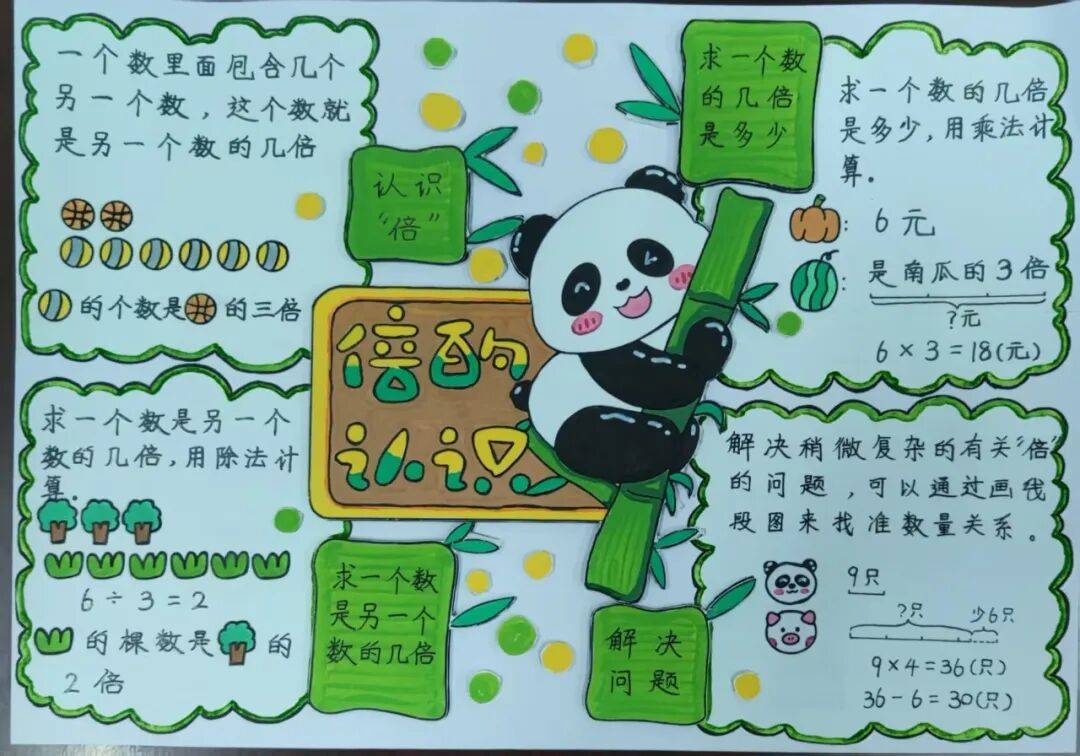 一个数里面包含几个
另一个数，这个数就
是另一个数的几倍
的个数是 的三倍
认识
“倍”
求一个数
的几倍
是多少
求一个数的几倍
是多少，用乘法计
算。
：6元
：是南瓜的3倍
?元
6×3=18(元)
倍的
认识
求一个数是另一个
数的几倍，用除法计
算。
6÷3=2
的棵数是 的
2倍
求一个数
是另一个
数的几倍
解决
问题
解决稍微复杂的有关“倍”
的问题，可以通过画线
段图来找准数量关系。
9只
?只 少6只
9×4=36(只)
36-6=30(只)